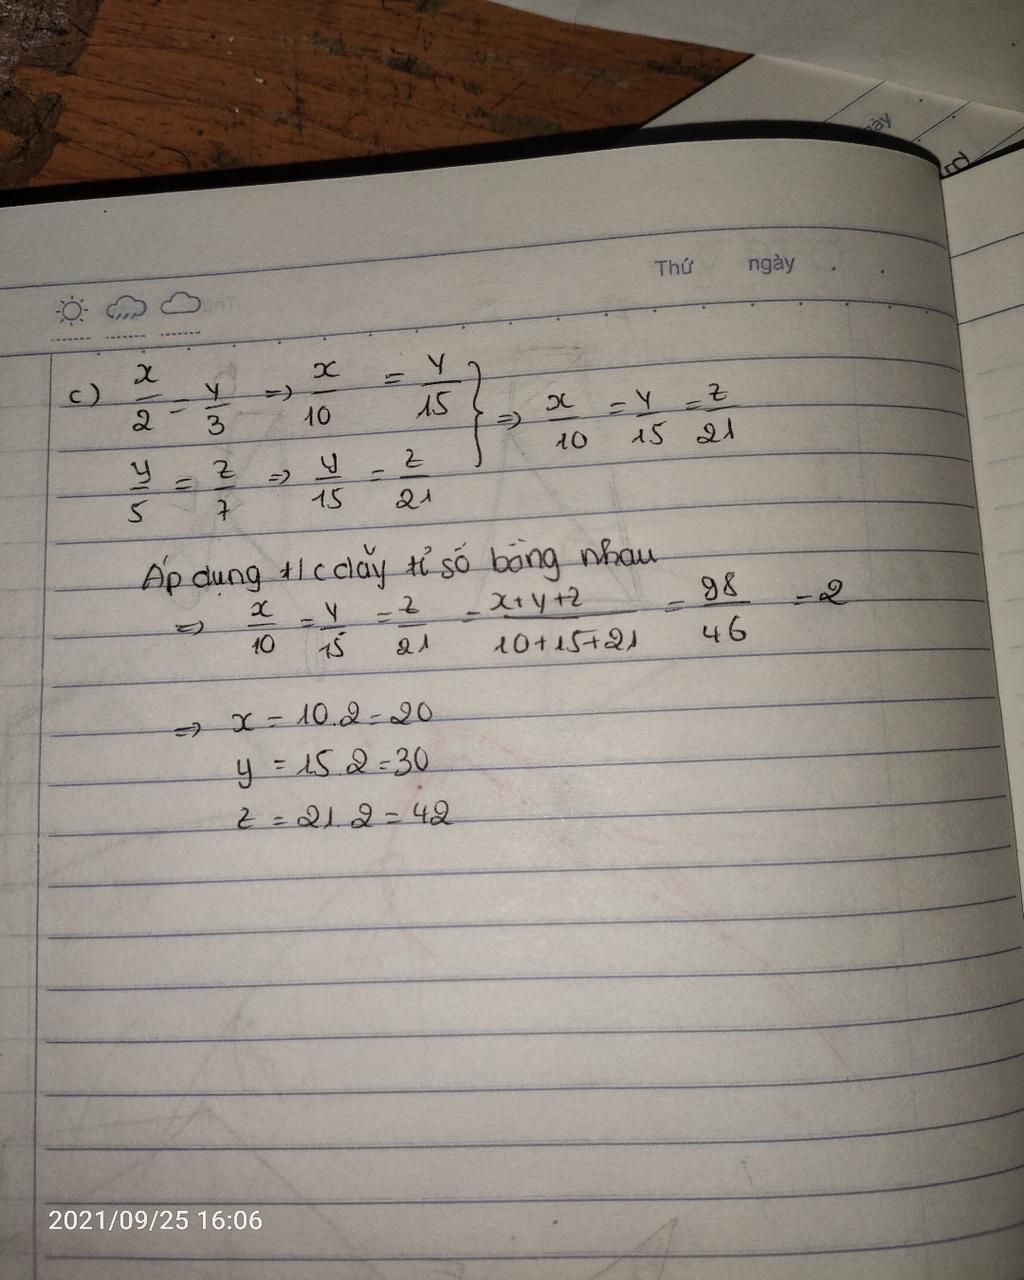 ày
Thứ ngày . .
c) x/2 = y/3 => x/10 = y/15 } => x/10 = y/15 = z/21
y/5 = z/7 => y/15 = z/21
Áp dụng t/c dãy tỉ số bằng nhau
=> x/10 = y/15 = z/21 = x+y+z/10+15+21 = 98/46 = 2
=> x = 10.2 = 20
y = 15.2 = 30
z = 21.2 = 42
2021/09/25 16:06